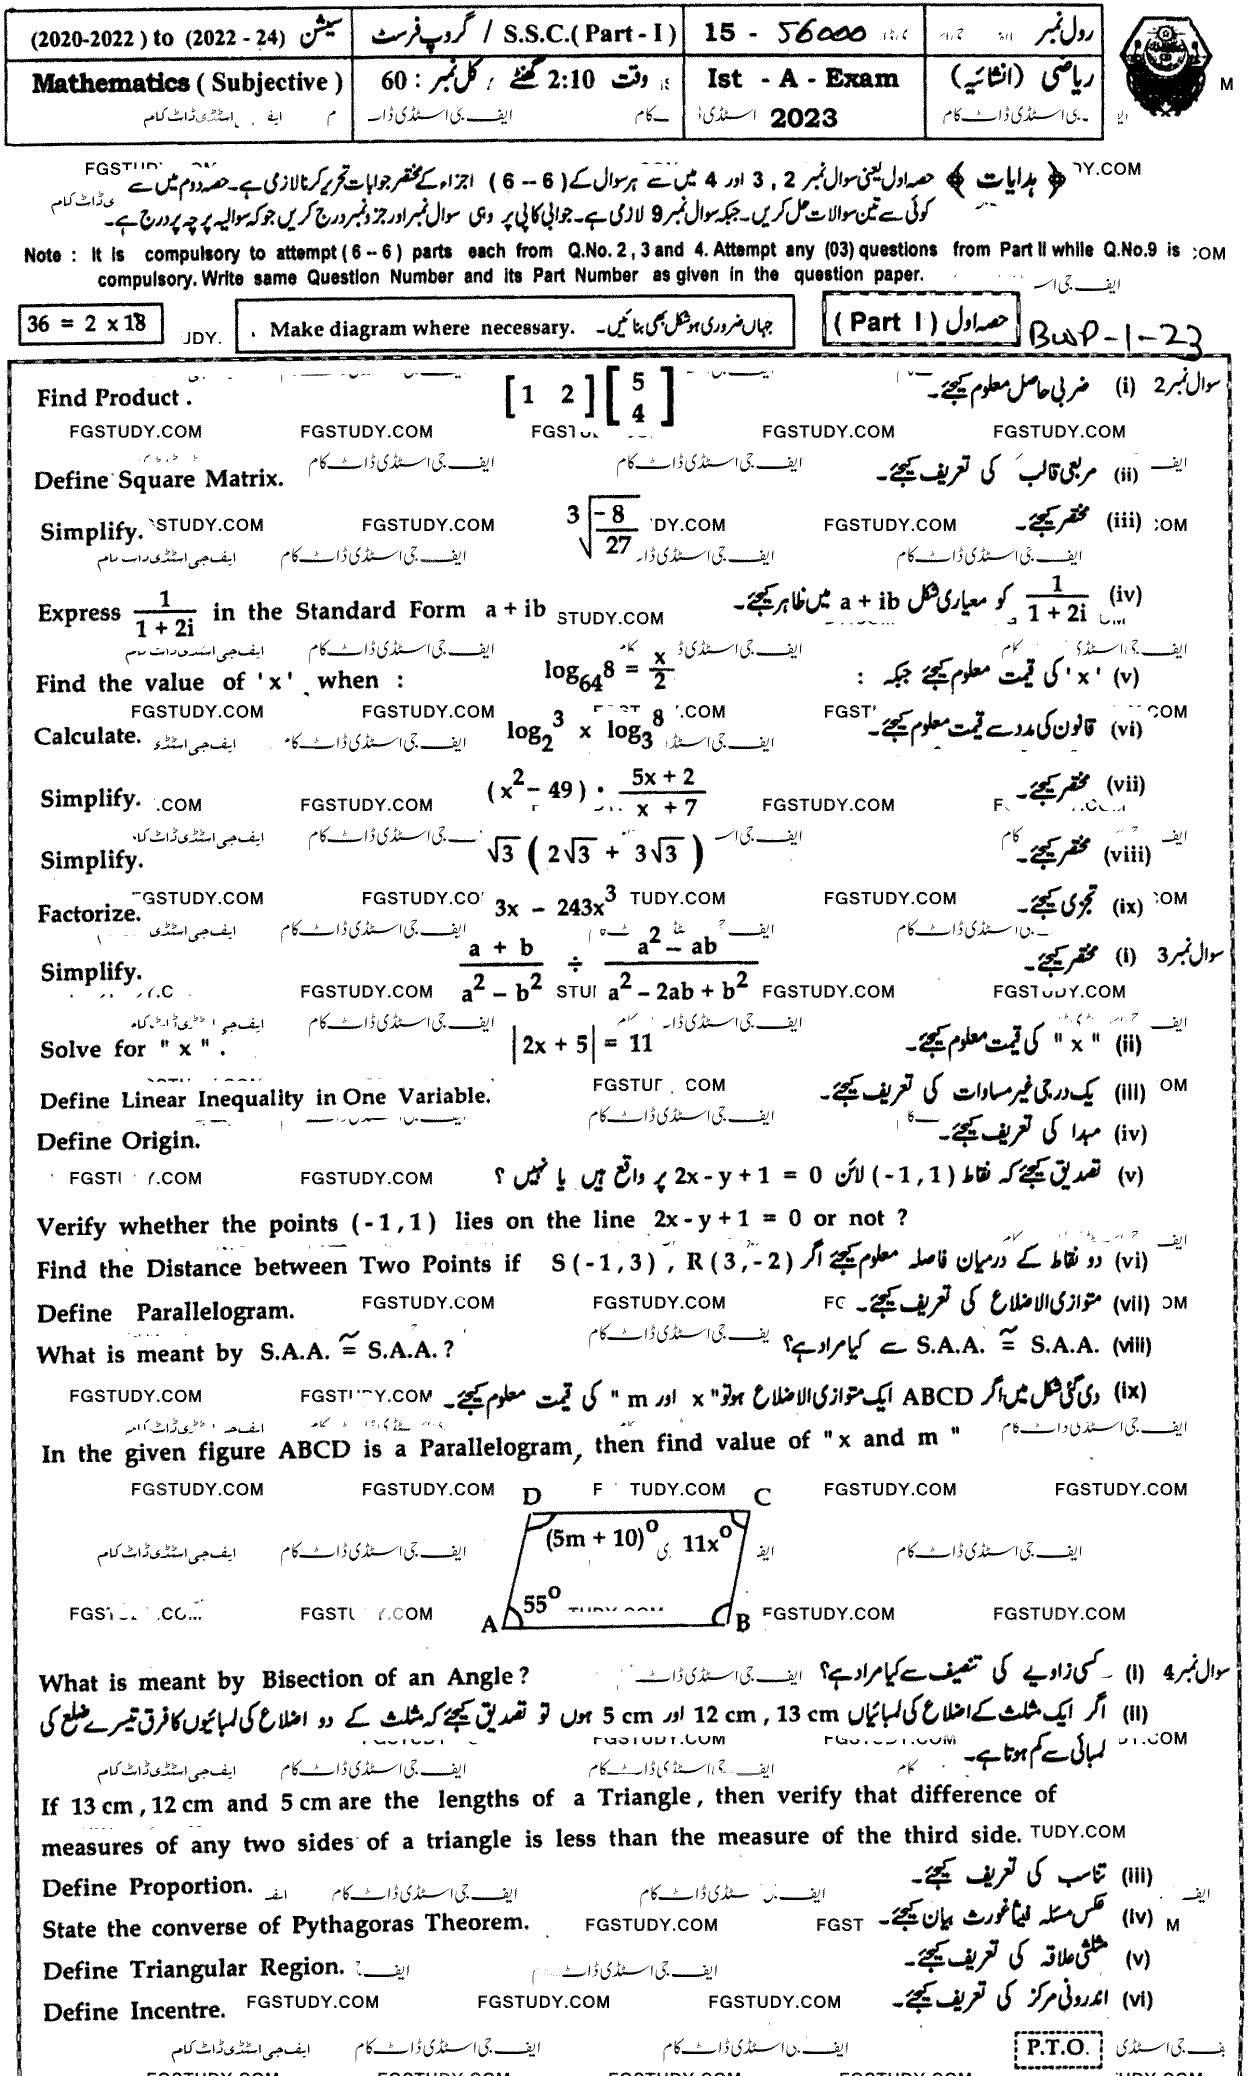 (2020-2022) to (2022 - 24) سیشن
S.S.C.(Part - I) / گروپ فرسٹ
15 - 56000
رول نمبر
Mathematics ( Subjective )
وقت 2:10 گھنٹے ، کل نمبر : 60
Ist - A - Exam 2023
ریاضی (انشائیہ)
﴿ ہدایات ﴾ حصہ اول یعنی سوال نمبر 2 , 3 اور 4 میں سے ہر سوال کے (6 – 6) اجزاء کے مختصر جوابات تحریر کرنا لازمی ہے۔ حصہ دوم میں سے
کوئی سے تین سوالات حل کریں۔ جبکہ سوال نمبر 9 لازمی ہے۔ جوابی کاپی پر وہی سوال نمبر اور جزو نمبر درج کریں جو کہ سوالیہ پرچہ پر درج ہے۔
Note : It is compulsory to attempt (6 – 6) parts each from Q.No. 2 , 3 and 4. Attempt any (03) questions from Part II while Q.No.9 is
compulsory. Write same Question Number and its Part Number as given in the question paper.
36 = 2 x 18
Make diagram where necessary. جہاں ضروری ہو شکل بھی بنائیں۔
(Part I) حصہ اول
BWP-1-23
Find Product . [1 2] [5 4] سوال نمبر 2 (i) ضربی حاصل معلوم کیجئے۔
Define Square Matrix. (ii) مربعی قالب کی تعریف کیجئے۔
Simplify. ∛(-8/27) (iii) مختصر کیجئے۔
Express 1/(1 + 2i) in the Standard Form a + ib (iv) 1/(1 + 2i) کو معیاری شکل a + ib میں ظاہر کیجئے۔
Find the value of 'x' when : log₆₄8 = x/2 (v) 'x' کی قیمت معلوم کیجئے جبکہ :
Calculate. log₂³ x log₃⁸ (vi) قانون کی مدد سے قیمت معلوم کیجئے۔
Simplify. (x² – 49) · (5x + 2)/(x + 7) (vii) مختصر کیجئے۔
Simplify. √3 ( 2√3 + 3√3 ) (viii) مختصر کیجئے۔
Factorize. 3x – 243x³ (ix) تجزی کیجئے۔
Simplify. (a + b)/(a² – b²) ÷ (a² – ab)/(a² – 2ab + b²) سوال نمبر 3 (i) مختصر کیجئے۔
Solve for " x " . |2x + 5| = 11 (ii) " x " کی قیمت معلوم کیجئے۔
Define Linear Inequality in One Variable. (iii) یک درجی غیر مساوات کی تعریف کیجئے۔
Define Origin. (iv) مبدا کی تعریف کیجئے۔
(v) تصدیق کیجئے کہ نقاط (-1 , 1) لائن 2x - y + 1 = 0 پر واقع ہیں یا نہیں ؟
Verify whether the points (-1 , 1) lies on the line 2x - y + 1 = 0 or not ?
Find the Distance between Two Points if S (-1 , 3) , R ( 3 , - 2 ) (vi) دو نقاط کے درمیان فاصلہ معلوم کیجئے اگر
Define Parallelogram. (vii) متوازی الاضلاع کی تعریف کیجئے۔
What is meant by S.A.A. ≅ S.A.A. ? (viii) S.A.A. ≅ S.A.A. سے کیا مراد ہے؟
(ix) دی گئی شکل میں اگر ABCD ایک متوازی الاضلاع ہو تو " x اور m " کی قیمت معلوم کیجئے۔
In the given figure ABCD is a Parallelogram, then find value of " x and m "
D C
(5m + 10)° 11x°
55°
A B
What is meant by Bisection of an Angle ? سوال نمبر 4 (i) کسی زاویے کی تنصیف سے کیا مراد ہے؟
(ii) اگر ایک مثلث کے اضلاع کی لمبائیاں 13 cm , 12 cm اور 5 cm ہوں تو تصدیق کیجئے کہ مثلث کے دو اضلاع کی لمبائیوں کا فرق تیسرے ضلع کی
لمبائی سے کم ہوتا ہے۔
If 13 cm , 12 cm and 5 cm are the lengths of a Triangle , then verify that difference of
measures of any two sides of a triangle is less than the measure of the third side.
Define Proportion. (iii) تناسب کی تعریف کیجئے۔
State the converse of Pythagoras Theorem. (iv) عکس مسئلہ فیثاغورث بیان کیجئے۔
Define Triangular Region. (v) مثلثی علاقہ کی تعریف کیجئے۔
Define Incentre. (vi) اندرونی مرکز کی تعریف کیجئے۔
P.T.O.
FGSTUDY.COM
ایف جی اسٹڈی ڈاٹ کام